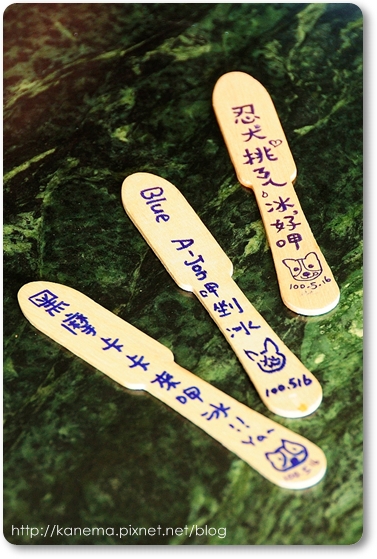 忍犬挑ㄟ冰,好呷
100.5.16
Blue A-Jon呷剉冰
100.5.16
卡卡來呷冰!!
Ya!
100.5.16
http://kanema.pixnet.net/blog